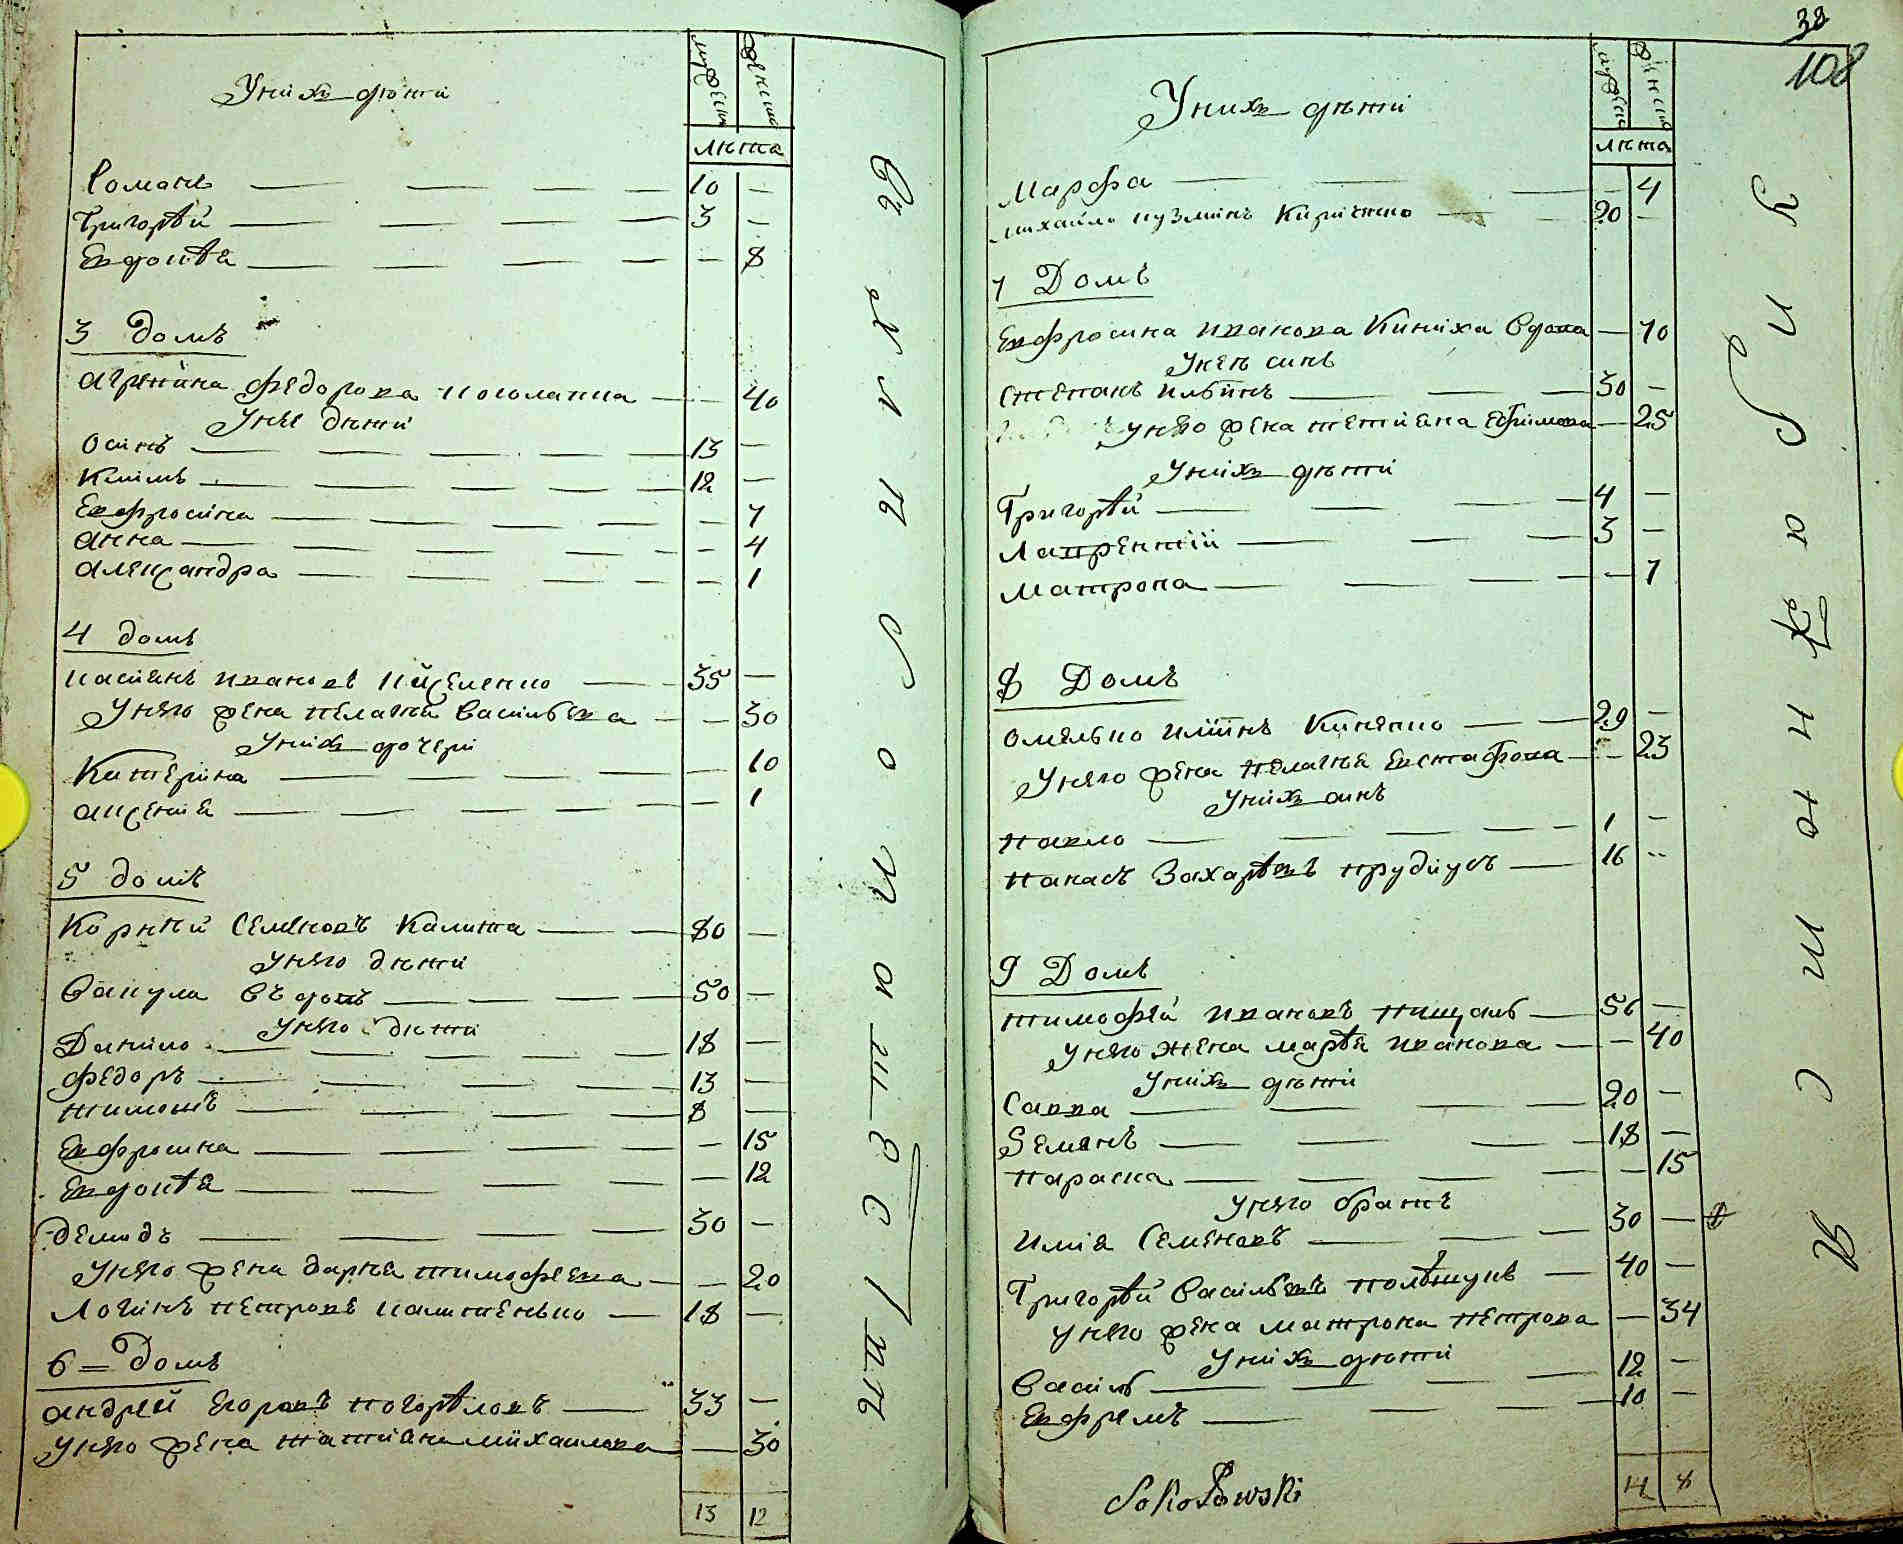 Унихъ дѣти
мужески
женски
лѣта
Романъ 10 —
Григорѣй 3 —
Евдокѣя — 8
3 домъ
Агрепина Федорова — 40
Унее дѣти
Осипъ 13 —
Климъ 12 —
Евфросина — 7
Анна — 4
Александра — 1
4 домъ
Касиянъ Ивановъ 35 —
Унего жена Пелагѣя Василъева — 30
Унихъ дочери
Катерина — 10
Аксения — 1
5 домъ
Корнѣй Семеновъ Калита 80 —
Унего дѣти
Вакула въдовъ 50 —
Унего дѣти
Данило 18 —
Федоръ 13 —
Тимошъ 8 —
Евфросина — 15
Евдокѣя — 12
Демидъ 30 —
Унего жена Дарѣя Тимофеева — 20
Логинъ Петровъ Калитенько 18 —
6 = Домъ
Андрей Егоровъ Погорѣловъ 33 —
Унего жена Татияна Михаилова — 30
13 12
38
108
Унихъ дѣти
мужески
женски
лѣта
Марфа — 4
Михайло Кузминъ Киричено 20 —
7 Домъ
Евфросина Иванова Киниха Вдова — 70
Унея синъ
Степанъ Илъинъ 30 —
Унего жена Тетияна Ефимова — 25
Унихъ дѣти
Григорѣй 4 —
Лаврентий 3 —
Матрона — 7
8 Домъ
Омелько Илїинъ Киненко 29 —
Унего жена Пелагѣя Евстафова — 23
Унихъ синъ
Павло 1 —
Панасъ Захарѣевъ Прудиусъ 16 —
9 Домъ
Тимофѣй Ивановъ Пищалъ 56 —
Унего жена Марѣя Иванова — 40
Унихъ дѣти
Савва 20 —
Семенъ 18 —
Параска — 15
Унего братъ
Илия Семеновъ 30 —
Григорѣй Василъевъ 40 —
Унего жена Матрона Петрова — 34
Унихъ дѣти
Василъ 12 —
Евфремъ 10 —
Sokołowski
14 8